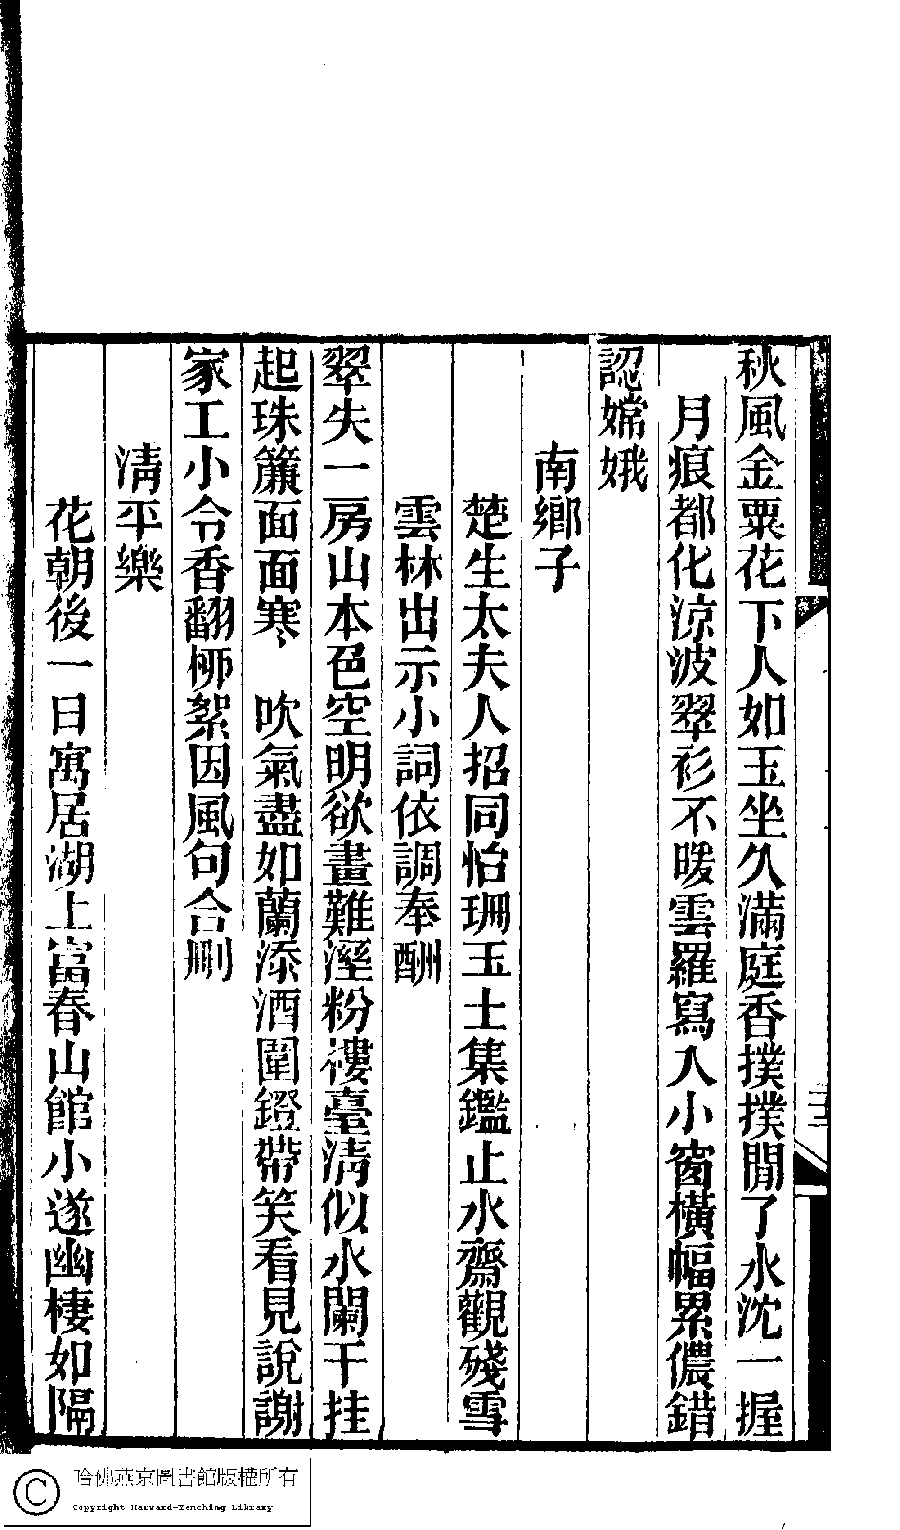 秋風金粟花下人如玉坐久滿庭香撲撲閒了水沈一握
月痕都化涼波翠衫不暖雲羅寫入小窗橫幅累儂錯
認嫦娥
南鄉子
楚生太夫人招同怡珊玉士集鑑止水齋觀殘雪
雲林出示小詞依調奉酬
翠失一房山本色空明欲畫難溼粉樓臺淸似水闌干挂
起珠簾面面寒 吹氣盡如蘭添酒圍鐙帶笑看見說謝
家工小令香翻栁絮因風句合刪
淸平樂
花朝後一日寓居湖上富春山館小遂幽棲如隔
三
哈佛燕京圖書館版權所有
Copyright Harvard-Yenching Library